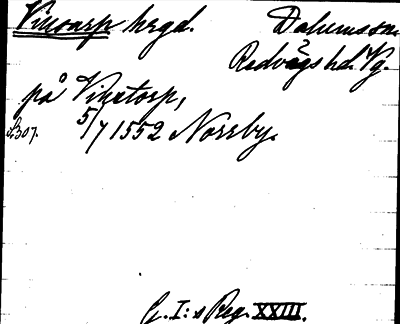 Vinsarp hrgd. Dalums sn.
Redvägs hd. Vg.
på Vinstorp,
s. 307. 5/7 1552 Norrby.
G. I:s Reg. XXIII.